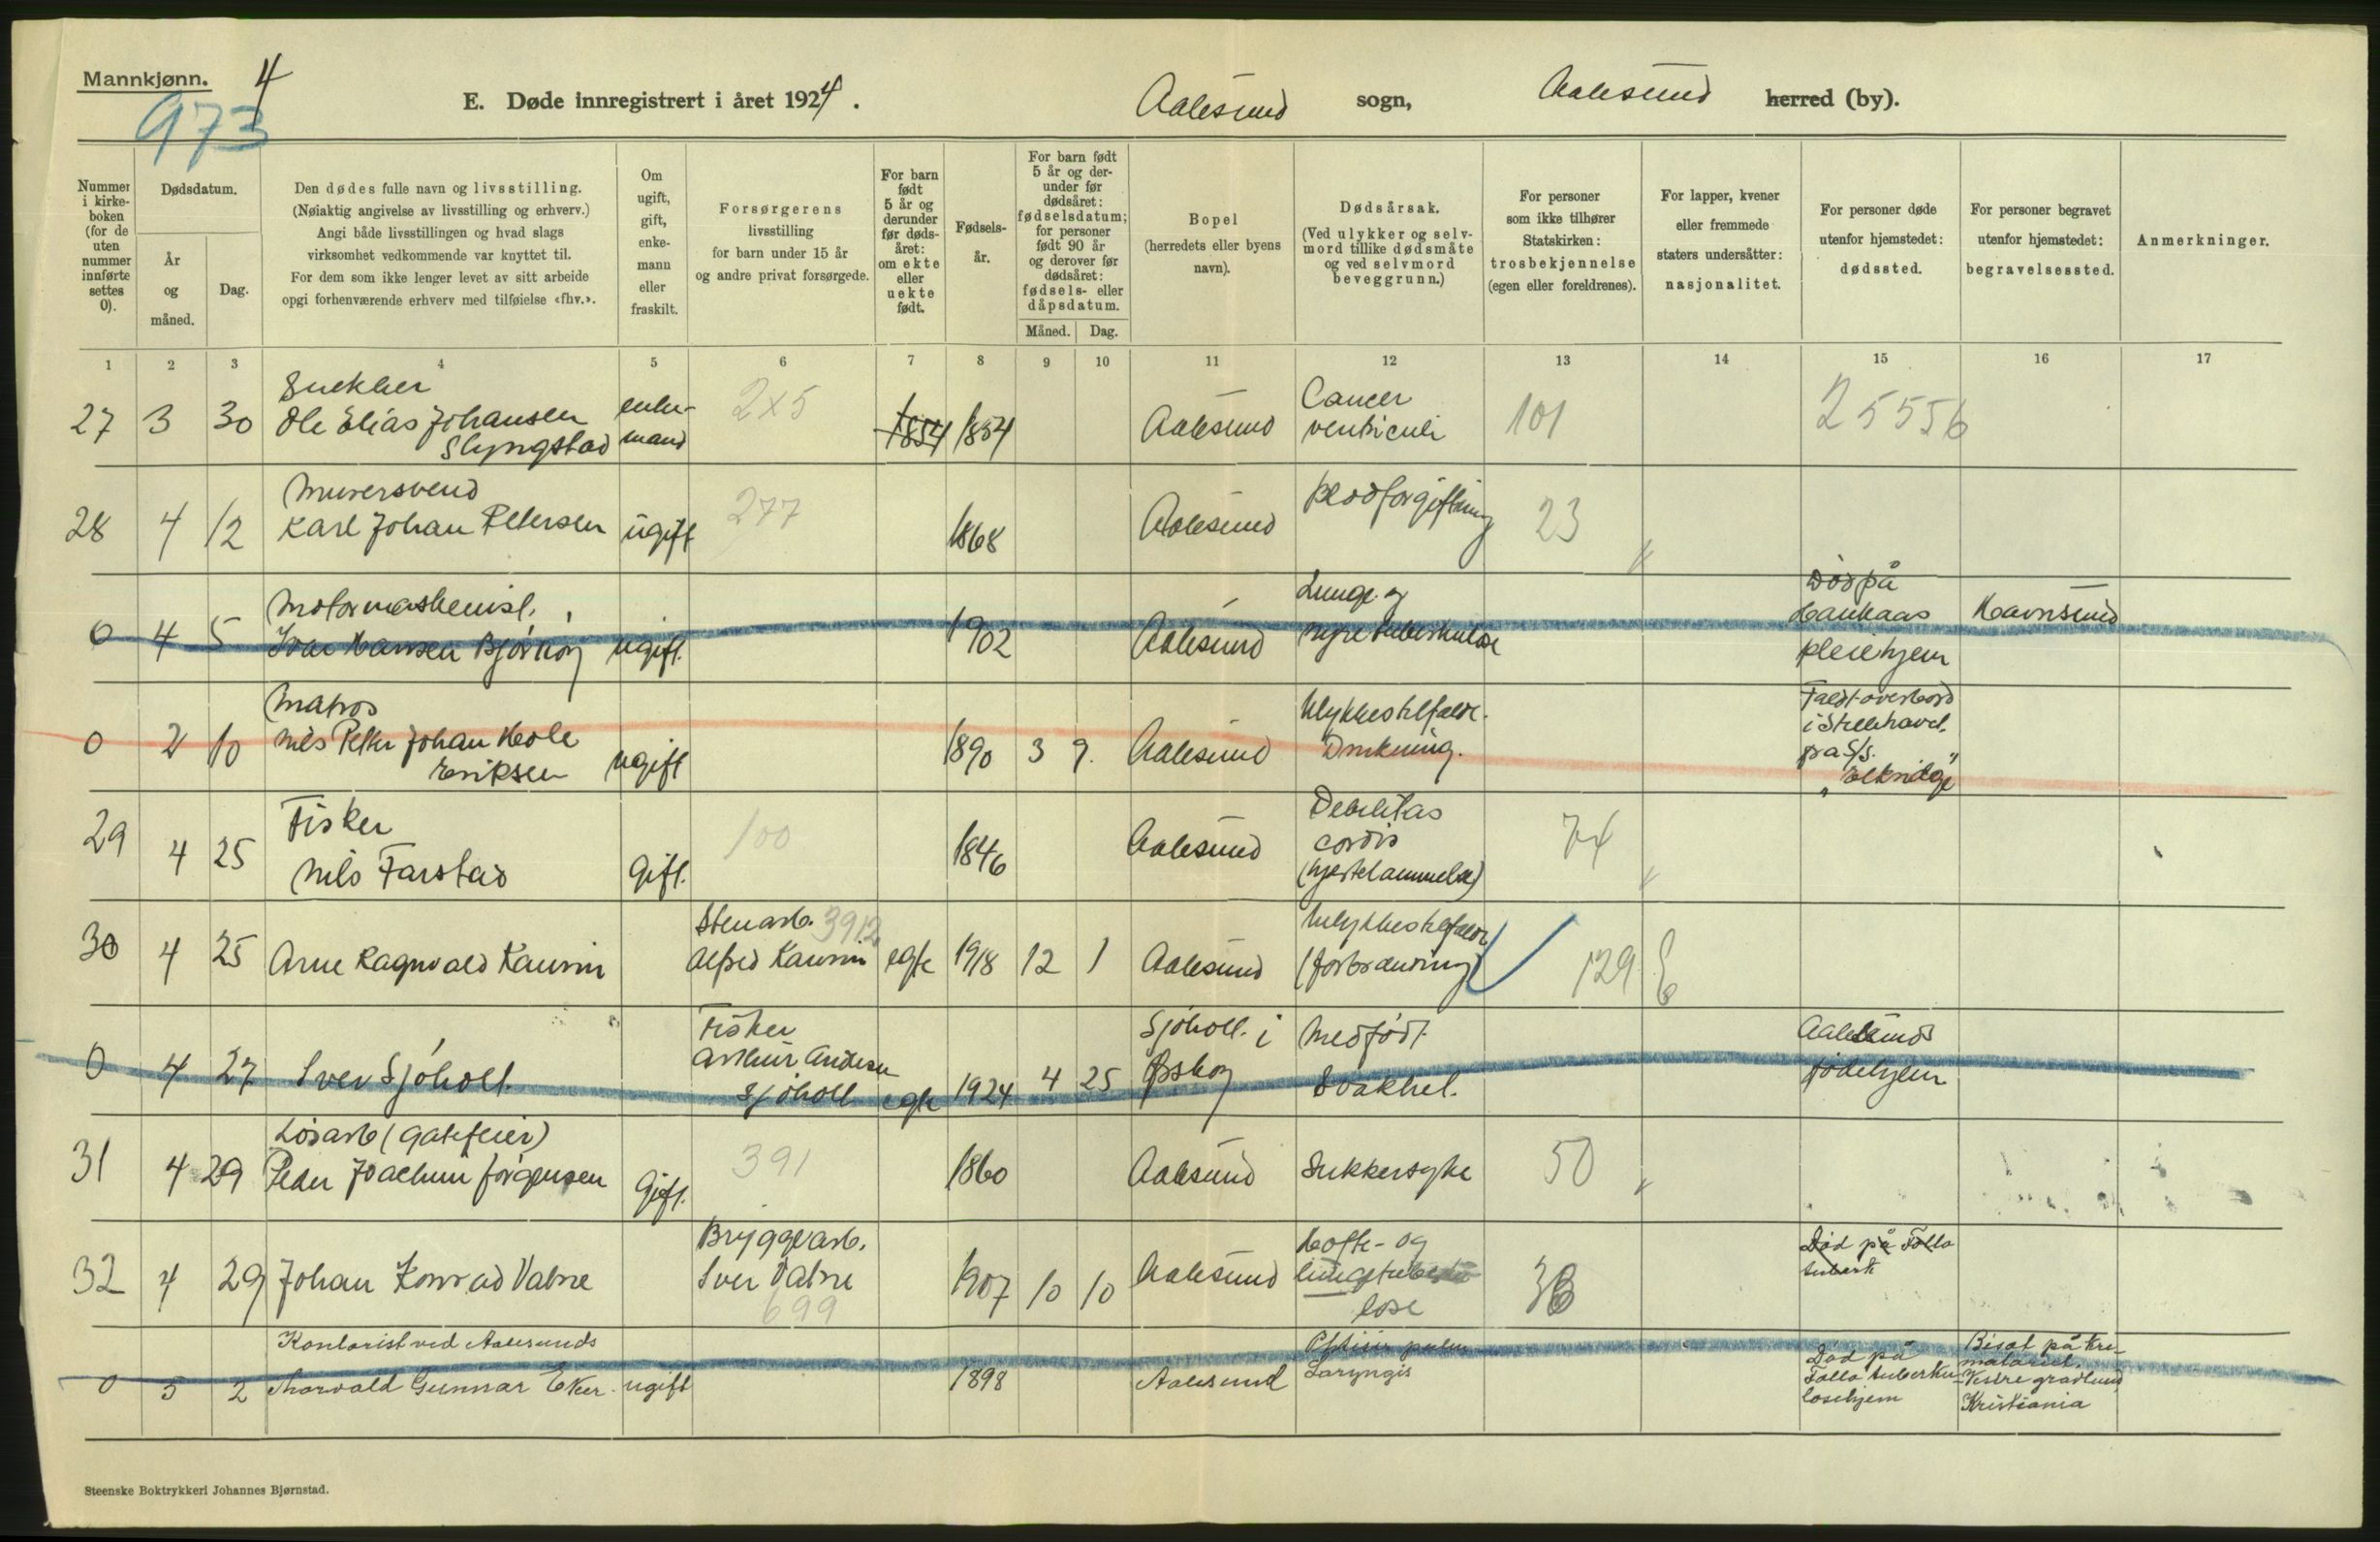 Mannkjønn.
4
973
E. Døde innregistrert i året 1924.
Aalesund sogn, Aalesund herred (by).
Nummer i kirkeboken (for de uten nummer innførte settes 0).
Dødsdatum.
År og måned.
Dag.
Den dødes fulle navn og livsstilling.
(Nøiaktig angivelse av livsstilling og erhverv.)
Angi både livsstillingen og hvad slags
virksomhet vedkommende var knyttet til.
For dem som ikke lenger levet av sitt arbeide
opgi forhenværende erhverv med tilføielse «fhv.».
Om ugift, gift, enkemann eller fraskilt.
Forsørgerens
livsstilling
for barn under 15 år
og andre privat forsørgede.
For barn født 5 år og derunder før dødsåret: om ekte eller uekte født.
Fødselsår.
For barn født 5 år og derunder før dødsåret: fødselsdatum; for personer født 90 år og derover før dødsåret: fødsels- eller dåpsdatum.
Måned. Dag.
Bopel
(herredets eller byens
navn).
Dødsårsak.
(Ved ulykker og selvmord tillike dødsmåte og ved selvmord beveggrunn.)
For personer
som ikke tilhører
Statskirken:
trosbekjennelse
(egen eller foreldrenes).
For lapper, kvener
eller fremmede
staters undersåtter:
nasjonalitet.
For personer døde
utenfor hjemstedet:
dødssted.
For personer begravet
utenfor hjemstedet:
begravelsessted.
Anmerkninger.
1 2 3 4 5 6 7 8 9 10 11 12 13 14 15 16 17
27 3 30 Snekker
Ole Elias Johansen
Slyngstad
enke-
mand
2x5
1854 1854 Aalesund
Cancer
ventriculi
101 25556
28 4 12 Murersvend
Karl Johan Petersen ugift 277 1868 Aalesund Blodforgiftning 23 "
0 4 5 Motormaskenist.
Ivar Hansen Bjørnøy ugift. 1902 Aalesund
Lunge og
nyretuberkulose
Død på
Haukaas
pleiehjem
Havnsund
0 2 10 Matros
Nils Petter Johan Hole
Eriksen
ugift 1890 3 9. Aalesund
Ulykkestilfælde.
Drukning.
Faldt overbord
i Stillehavet,
på S/S.
"Elkridge"
29 4 25 Fisker
Nils Farstad Gift. 100 1846 Aalesund
Debilitas
cordis
(hjertelammelse)
74 "
30 4 25 Arne Ragnvald Kaurin
Stenarb. 3912
Alfred Kaurin egte 1918 12 1 Aalesund
Ulykkestilfælde
(forbrænning)
129
0 4 27 Iver Sjøholt.
Fisker
Arthur Andersen
Sjøholt egte 1924 4 25
Sjøholt i
Ørskog
Medfødt
svakhet.
Aalesunds
fødehjem
31 4 29 Løsarb (gatefeier)
Peder Joachim Jørgensen Gift. 391 1860 Aalesund Sukkersyke 50 "
32 4 29 Johan Konrad Vatne
Bryggearb.
Iver Vatne
699
1907 10 10 Aalesund
Hofte- og
lungetuberku
lose
Død på Tolla
tuberk
0 5 2 Kontorist ved Aalesunds
Thorvald Gunnar Eker ugift 1898 Aalesund
Phtisis pulm
Laryngis
Død på
Tolla tuberku-
losehjem
Bisat på kre-
matoriet.
Vestre gravlund
Kristiania
Steenske Boktrykkeri Johannes Bjørnstad.